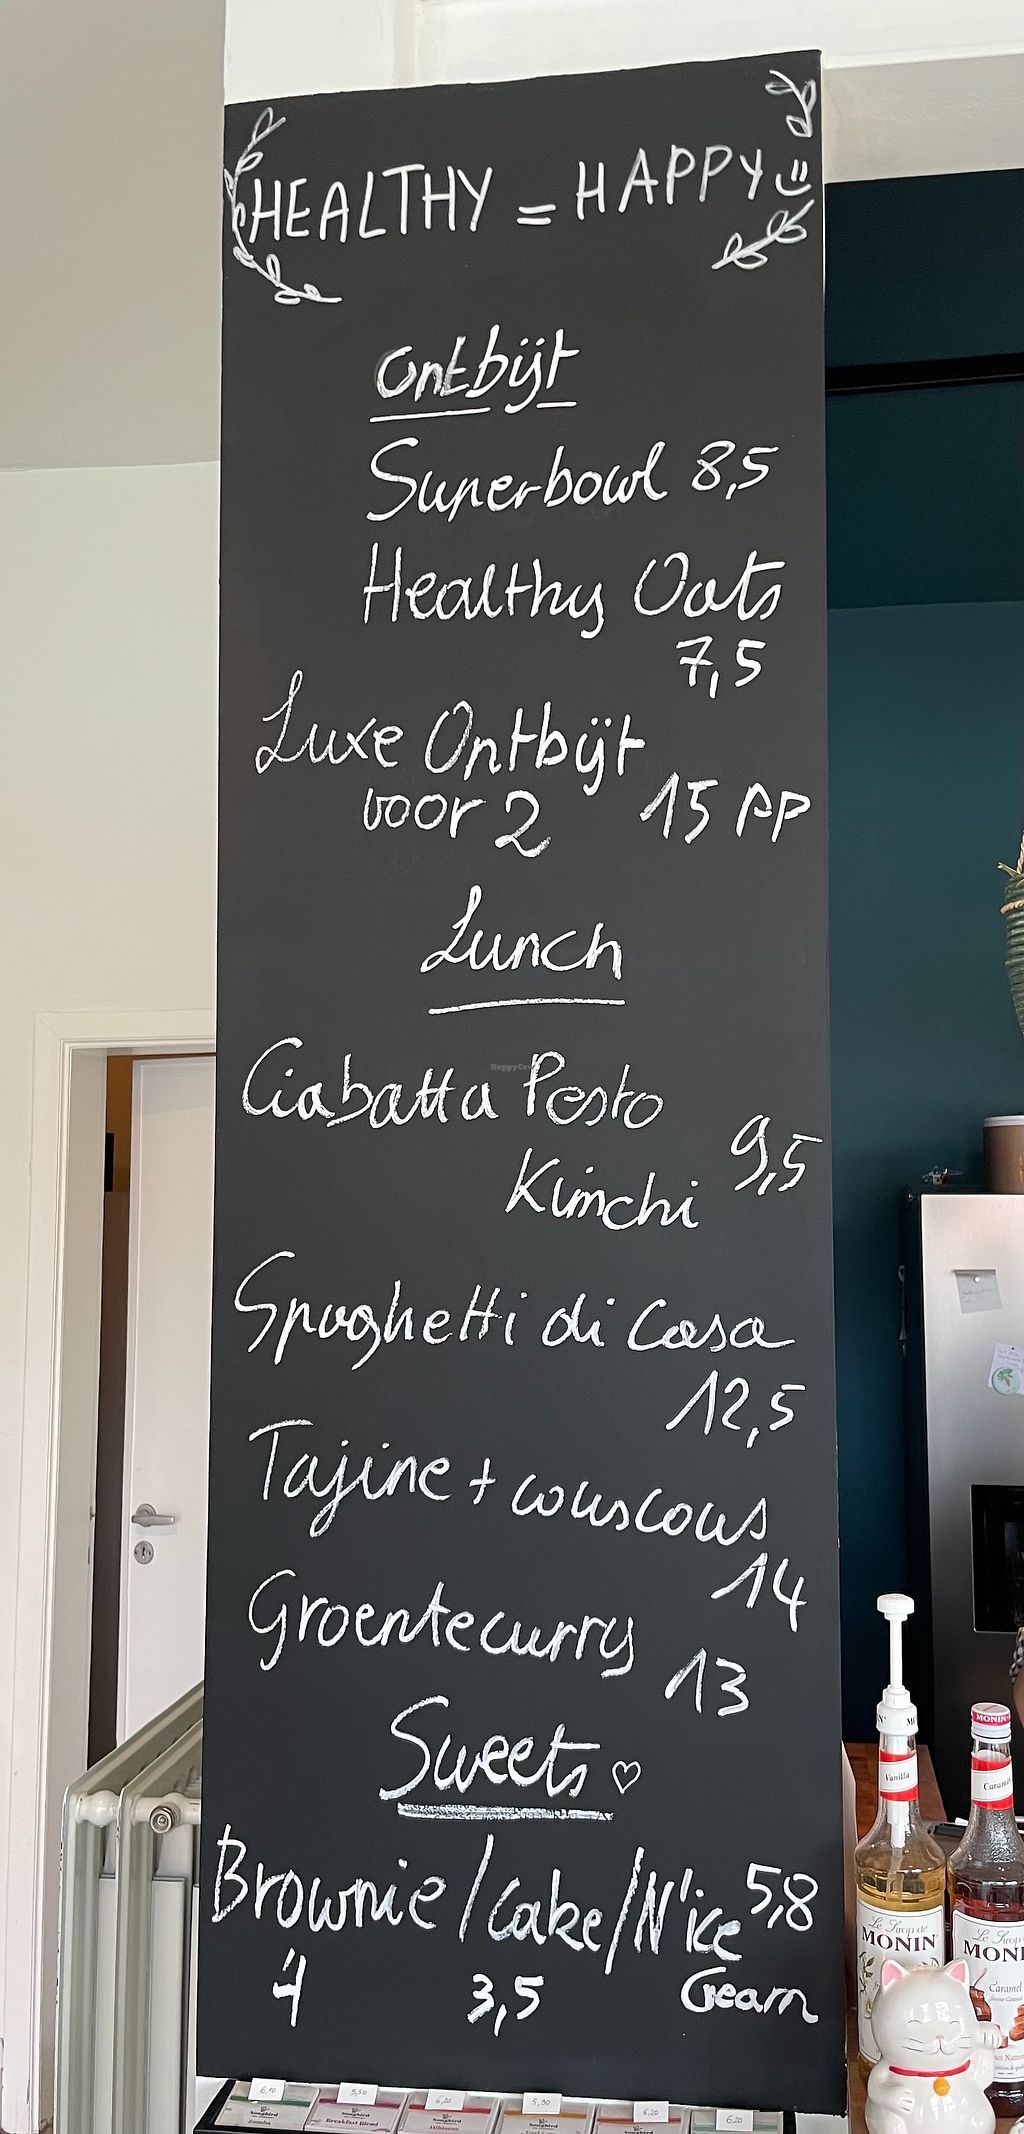 HEALTHY = HAPPY
Ontbijt
Superbowl 8,5
Healthy Oats
7,5
Luxe Ontbijt
voor 2 15 pp
Lunch
Ciabatta Pesto
Kimchi 9,5
Spaghetti di Casa
12,5
Tajine + couscous
14
Groentecurry
13
Sweets ♡
Brownie / Cake / N'ice 5,8
4 3,5 Cream
HappyCow
Vanilla
Le Sirop de
MONIN
MONIN
Caramel
Le Sirop
MONI
Caramel
6,10 5,50 6,20 5,90 6,20 6,20
Songbird
Zomba
Songbird
Breakfast Blend
Songbird
Hibiscus
Songbird